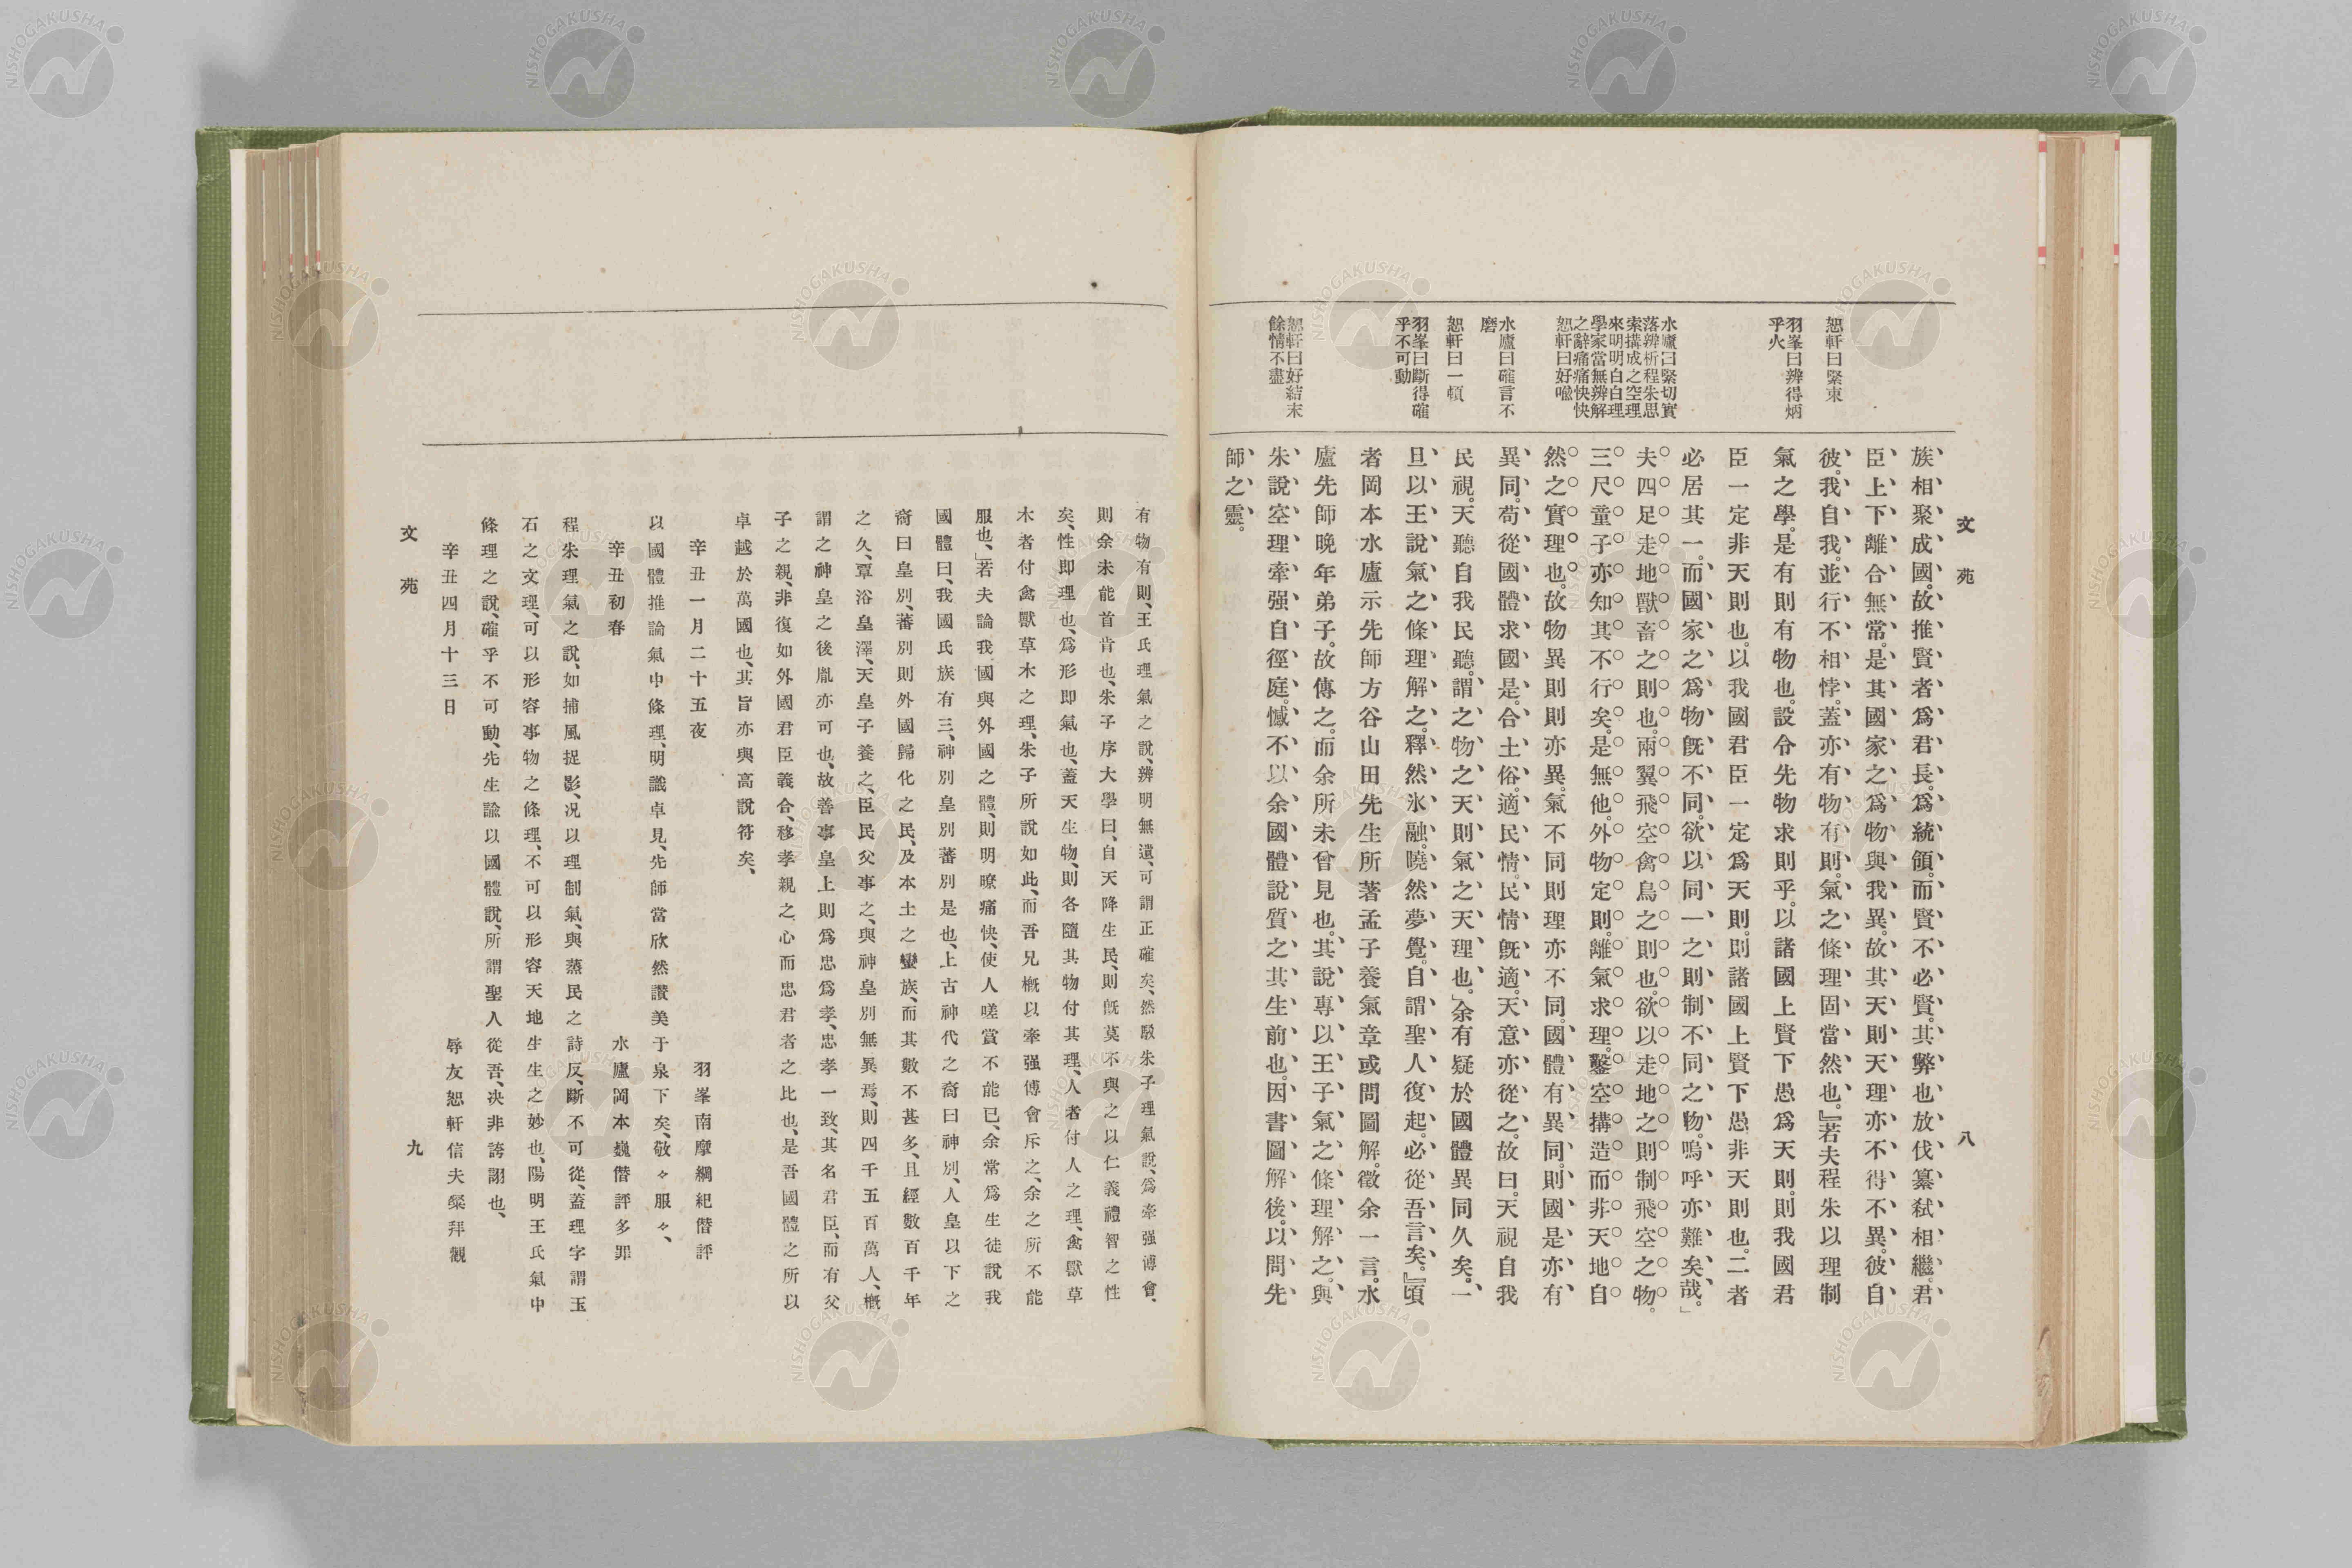 文苑
八
恕軒曰緊束
羽峯曰辨得炳
乎火
水廬曰緊切實
落辨析程朱思
索搆成之空理
來明明白白理
學家當無辨解
之辭痛痛快快
恕軒曰好喩
水廬曰確言不
磨
恕軒曰一頓
羽峯曰斷得確
乎不可動
恕軒曰好結末
餘情不盡
族、相聚成國。故推賢者爲君長。爲統領。而賢不必賢。其弊也放伐簒弑相繼。君
臣上下離合無常。是其國家之爲物與我異。故其天則天理亦不得不異。彼自
彼。我自我。並行不相悖。蓋亦有物有則。氣之條理固當然也。』若夫程朱以理制
氣之學。是有則有物也。設令先物求則乎。以諸國上賢下愚爲天則。則我國君
臣一定非天則也。以我國君臣一定爲天則。則諸國上賢下愚。非天則也。二者
必居其一。而國家之爲物旣不同。欲以同一之則制不同之物。嗚呼亦難矣哉。」
夫四足走地獸畜之則也。兩翼飛空禽鳥之則也。欲以走地之則制飛空之物。
三尺童子亦知其不行矣。是無他。外物定則。離氣求理。鑿空搆造而非天地自
然之實理也。故物異則則亦異。氣不同則理亦不同。國體有異同。則國是亦有
異同。苟從國體求國是。合土俗。適民情。民情旣適。天意亦從之。故曰。天視自我
民視。天聽自我民聽。謂之物之天則氣之天理也。」余有疑於國體異同久矣。一
旦以王說氣之條理解之。釋然氷融。曉然夢覺。自謂聖人復起。必從吾言矣。』頃
者岡本水廬示先師方谷山田先生所著孟子養氣章或問圖解。徵余一言。水
廬先師晚年弟子。故傳之。而余所未曾見也。其說專以王子氣之條理解之。與
朱說空理牽强自徑庭。憾不以余國體說質之其生前也。因書圖解後。以問先
師之靈。
有物有則、王氏理氣之說、辨明無遺、可謂正確矣、然駁朱子理氣說、爲牽强博會、
則余未能首肯也、朱子序大學曰、自天降生民、則旣莫不與之以仁義禮智之性
矣、性即理也、爲形即氣也、蓋天生物、則各隨其物付其理、人者付人之理、禽獸草
木者付禽獸草木之理、朱子所說如此、而吾兄槪以牽强博會斥之、余之所不能
服也、」若夫論我國與外國之體、則明暸痛快、使人嗟賞不能已、余常爲生徒說我
國體曰、我國氏族有三、神別皇別蕃別是也、上古神代之裔曰神別、人皇以下之
裔曰皇別、蕃別則外國歸化之民、及本土之蠻族、而其數不甚多、且經數百千年
之久、覃浴皇澤、天皇子養之、臣民父事之、與神皇別無異焉、則四千五百萬人、槪
謂之神皇之後胤亦可也、故善事皇上則爲忠爲孝、忠孝一致、其名君臣、而有父
子之親、非復如外國君臣義合、移孝親之心而忠君者之比也、是吾國體之所以
卓越於萬國也、其旨亦與高說符矣、
辛丑一月二十五夜　羽峯南摩綱紀僭評
以國體推論氣中條理、明識卓見、先師當欣然讚美于泉下矣、敬々服々、
辛丑初春　水廬岡本巍僭評多罪
程朱理氣之說、如捕風捉影、况以理制氣、與蒸民之詩反、斷不可從、蓋理字謂玉
石之文理、可以形容事物之條理、不可以形容天地生生之妙也、陽明王氏氣中
條理之說、確乎不可動、先生諭以國體說、所謂聖人從吾、决非誇詡也、
辛丑四月十三日　辱友恕軒信夫粲拜觀
文苑
九